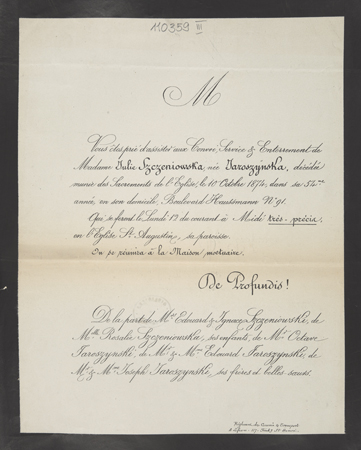 110359 III
M
Vous êtes prié d'assister aux Convoi, Service & Enterrement de
Madame Julie Szczeniowska, née Jaroszyńska, décédé
munie des Sacrements de l'Église, le 10 Octobre 1874, dans sa 54me
année, en son domicile, Boulevard Haussmann No 91.
Qui se feront le Lundi 12 du courant à Midi très-précis,
en l'Église St Augustin, sa paroisse.
On se réunira à la Maison mortuaire.
De Profundis!
De la part de Mrs Edouard & Ignace Szczeniowski, de
Melle Rosalie Szczeniowska, ses enfants, de Mr Octave
Jaroszynski, de Mr & Mme Edouard Jaroszynski, de
Mr & Mme Joseph Jaroszynski, ses frères et belles-sœurs.